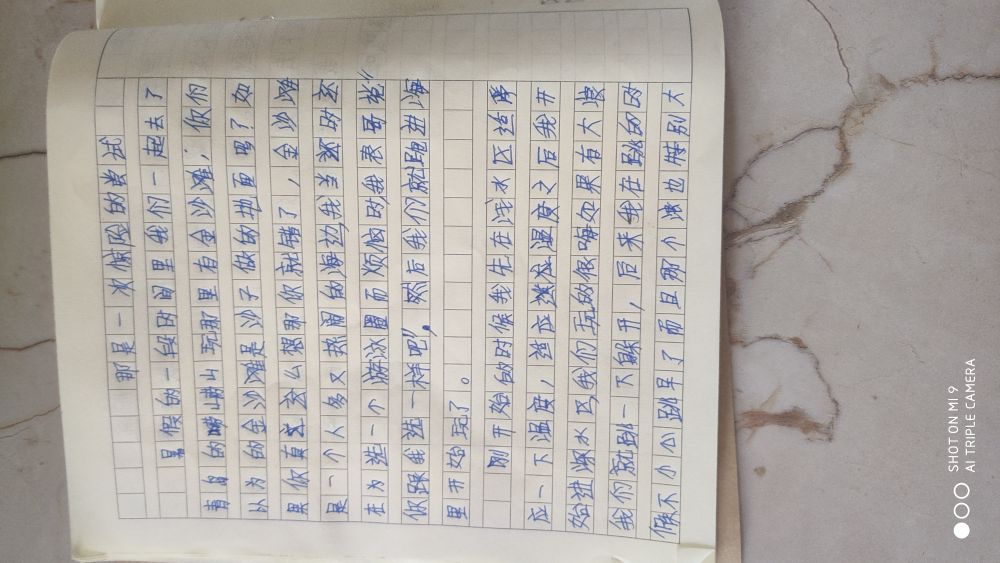 那是一次惊险的尝试
暑假的一段时间里我们一起去了
青岛的崂山玩那里有金沙滩，你们
以为的金沙滩是沙子做的地面吗？如
果你真这么想那你就错了，金沙滩
是一个人多又热闹的海边，我当时
在为选一个游泳圈而烦恼时，我表哥说“
你跟我选一样吧”，然后我们就跑进海
里开始玩了。
刚开始的时候我先在浅水区适
应一下温度，适应温度之后我开
始进深水区，我们玩的很嗨如果有大浪
我们就跳一下躲开，后来我在跳的时
候不小心跳早了而且那个浪也特别大
SHOT ON MI 9
AI TRIPLE CAMERA